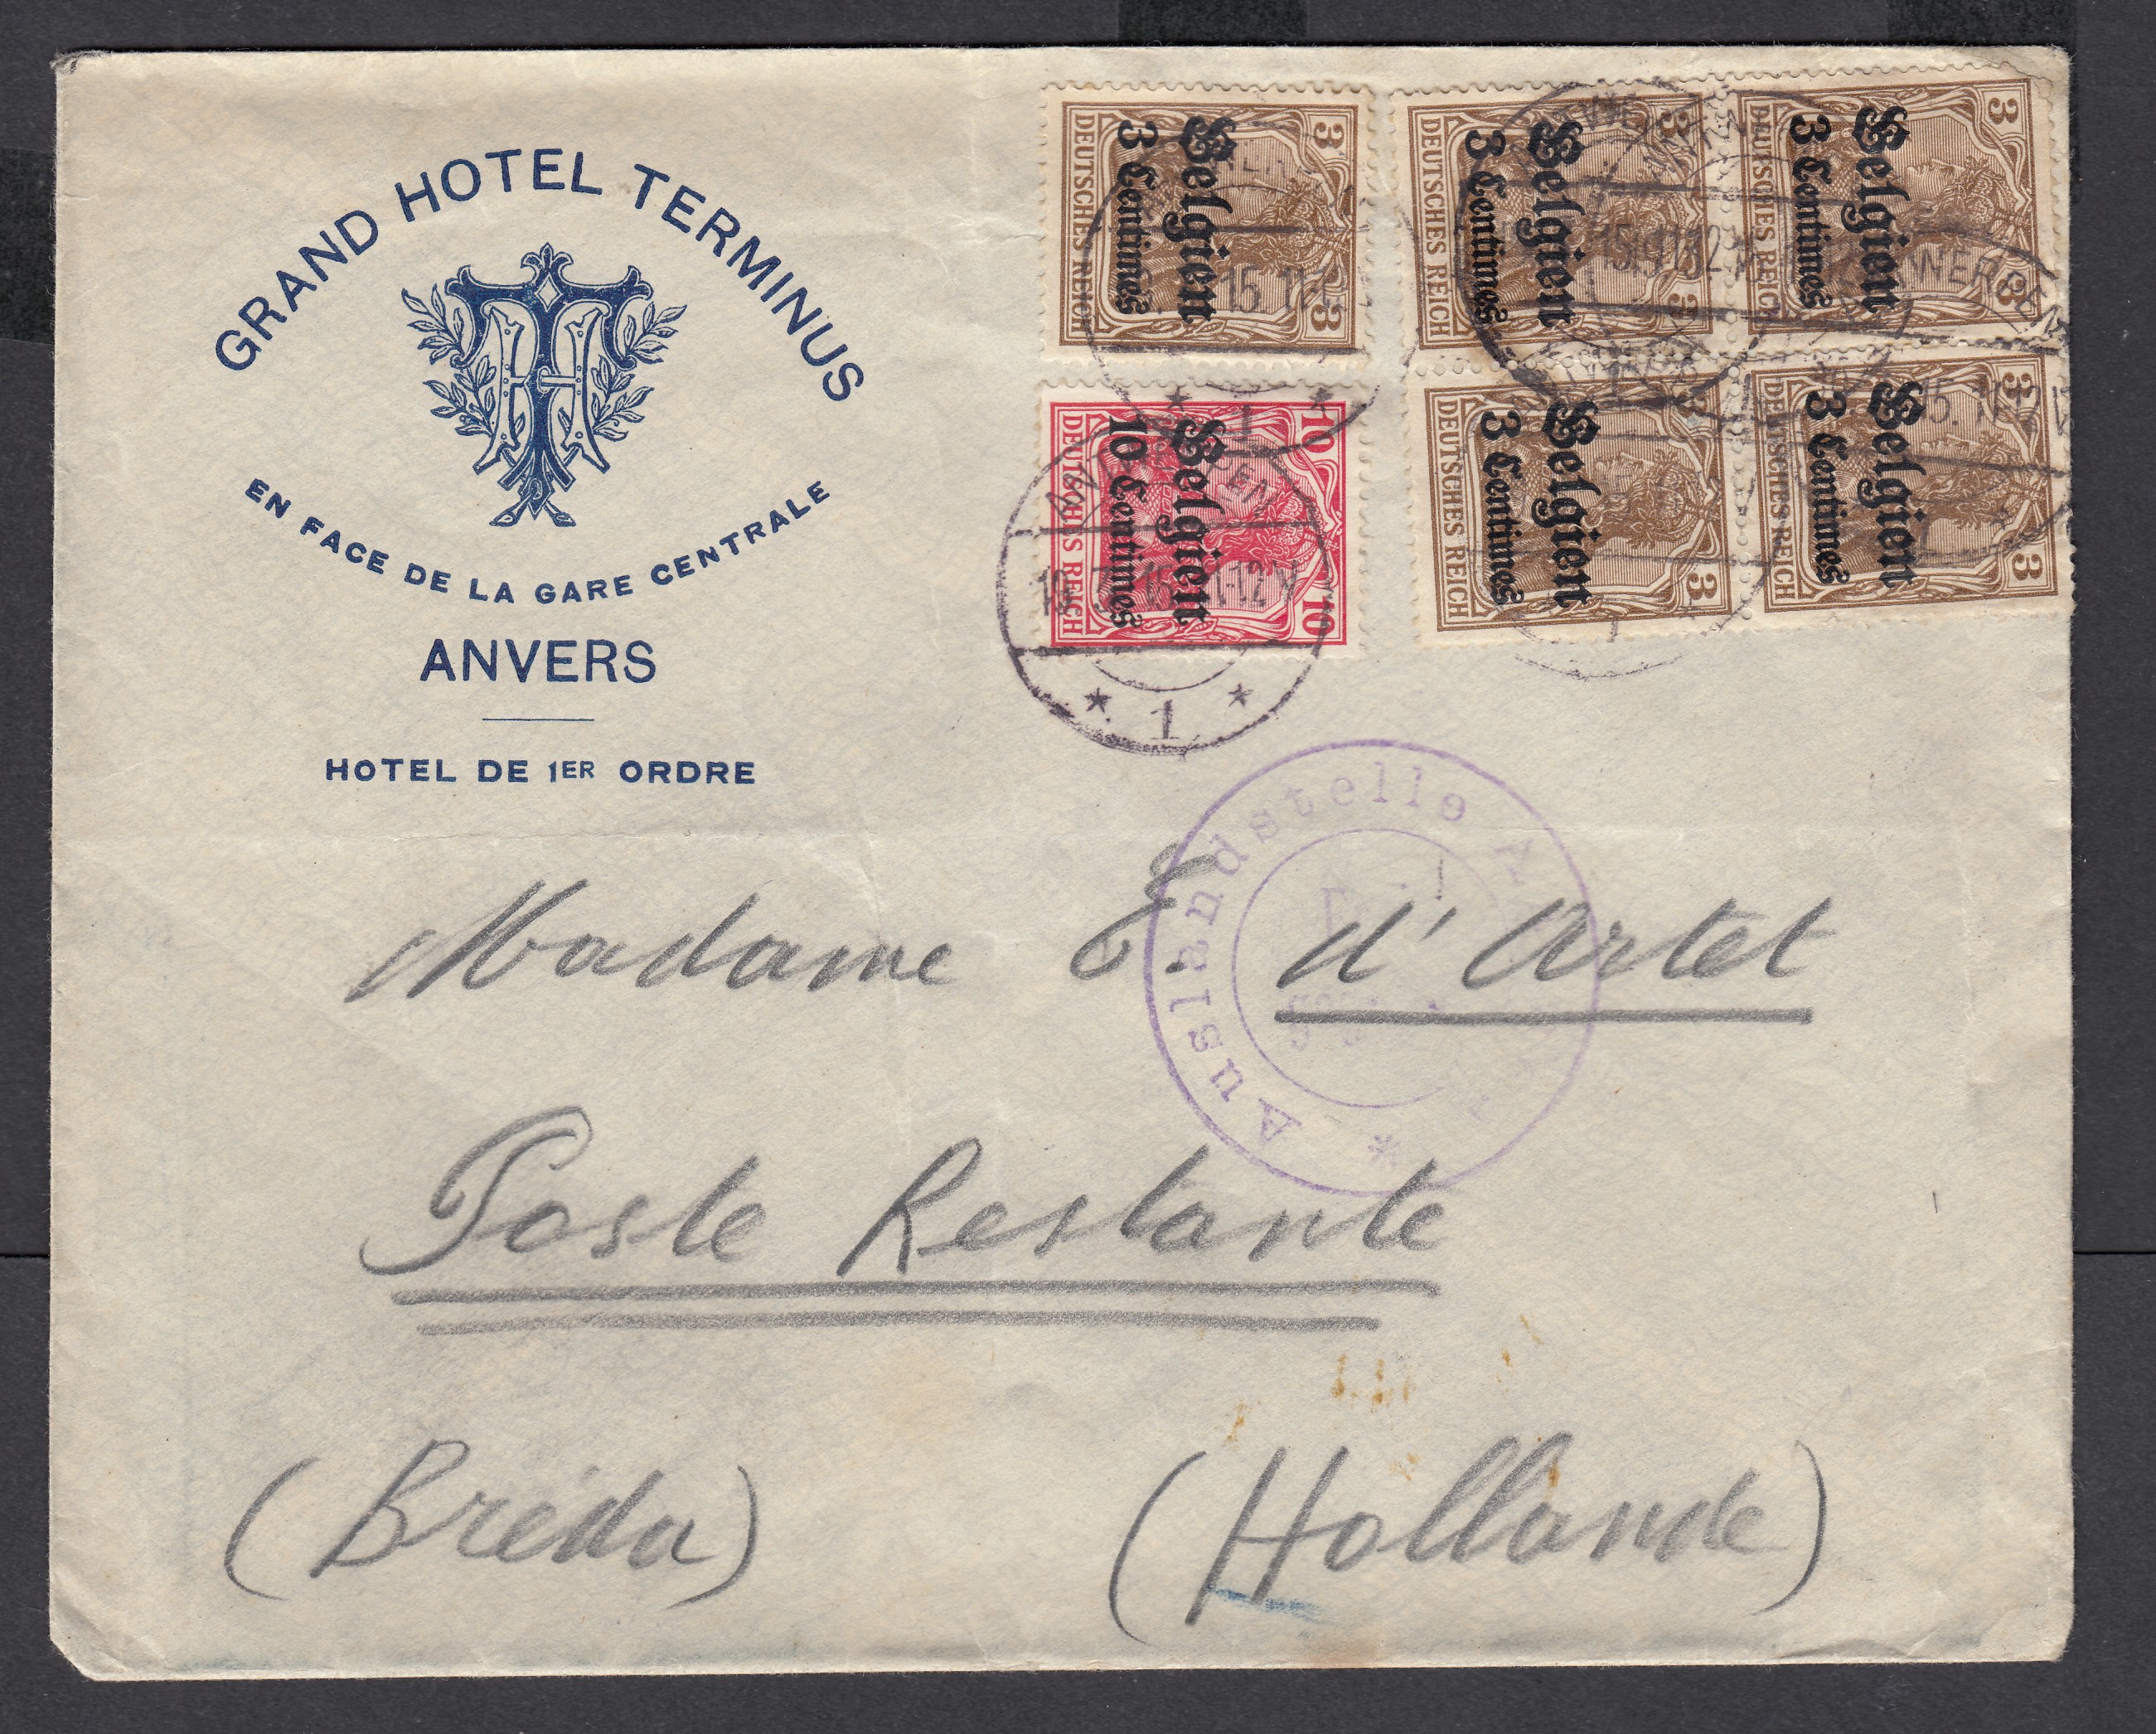 GRAND HOTEL TERMINUS
THT
EN FACE DE LA GARE CENTRALE
ANVERS
HOTEL DE 1ER ORDRE
3 3
DEUTSCHES REICH
Belgien
3 Centimes
3 3
DEUTSCHES REICH
Belgien
3 Centimes
3 3
DEUTSCHES REICH
Belgien
3 Centimes
10 10
DEUTSCHES REICH
Belgien
10 Centimes
3
DEUTSCHES REICH
Belgien
3 Centimes
3 3
DEUTSCHES REICH
Belgien
3 Centimes
ANTWERPEN
11-12 V
* 1 *
* Auslandstelle
Madame E. d'Artet
Poste Restante
(Bréda) (Hollande)